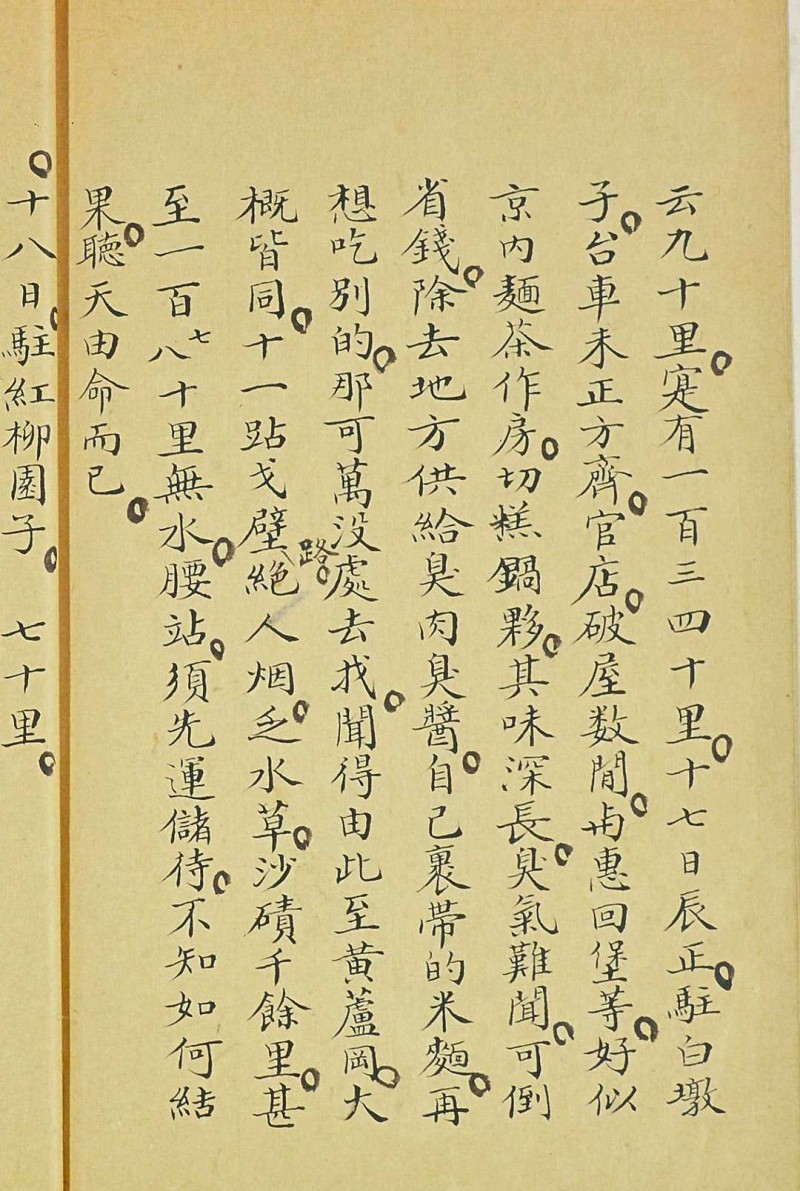 云九十里。寔有一百三四十里。十七日辰正。駐白墩
子。台車未正方齊。官店。破屋数間。与惠回堡等。好似
京内麵茶作房。切糕鍋夥。其味深長。臭氣難聞。可倒
省錢。除去地方供給臭肉臭醬。自己裹帶的米麵。再
想吃别的。那可萬没處去找。聞得由此至黃蘆岡。大
概皆同。十一跕戈壁路。絶人烟。乏水草。沙磧千餘里。甚
至一百七八十里無水。腰站。須先運儲待。不知如何結
果。聽天由命而已。
。十八日。駐紅柳園子。 七十里。